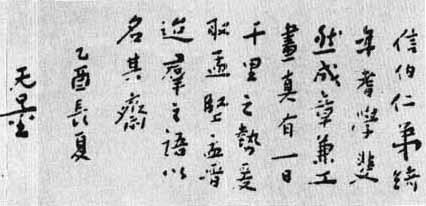 信伯仁弟綺
年耆學斐
然成章兼工
畫真有一日
千里之勢爰
取孟堅孟晋
迨羣之語以
名其齋
乙酉長夏
无量